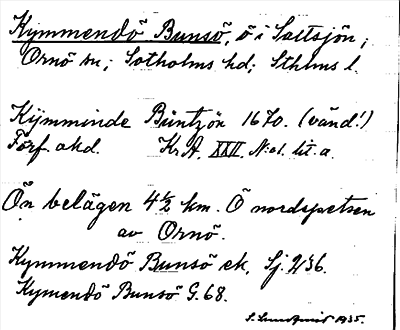 Kymmendö Bunsö, ö i Saltsjön;
Ornö sn; Sotholms hd; Sthlms l.
Kÿmminde Büntzön 1670. (vänd!)
Förf. okd. Kr.A. XXII, N:o1. lit. a.
Ön belägen 4 ½ km. Ö nordspetsen
av Ornö.
Kymmendö Bunsö ek, Sj. 236.
Kymendö Bunsö G. 68.
1935.